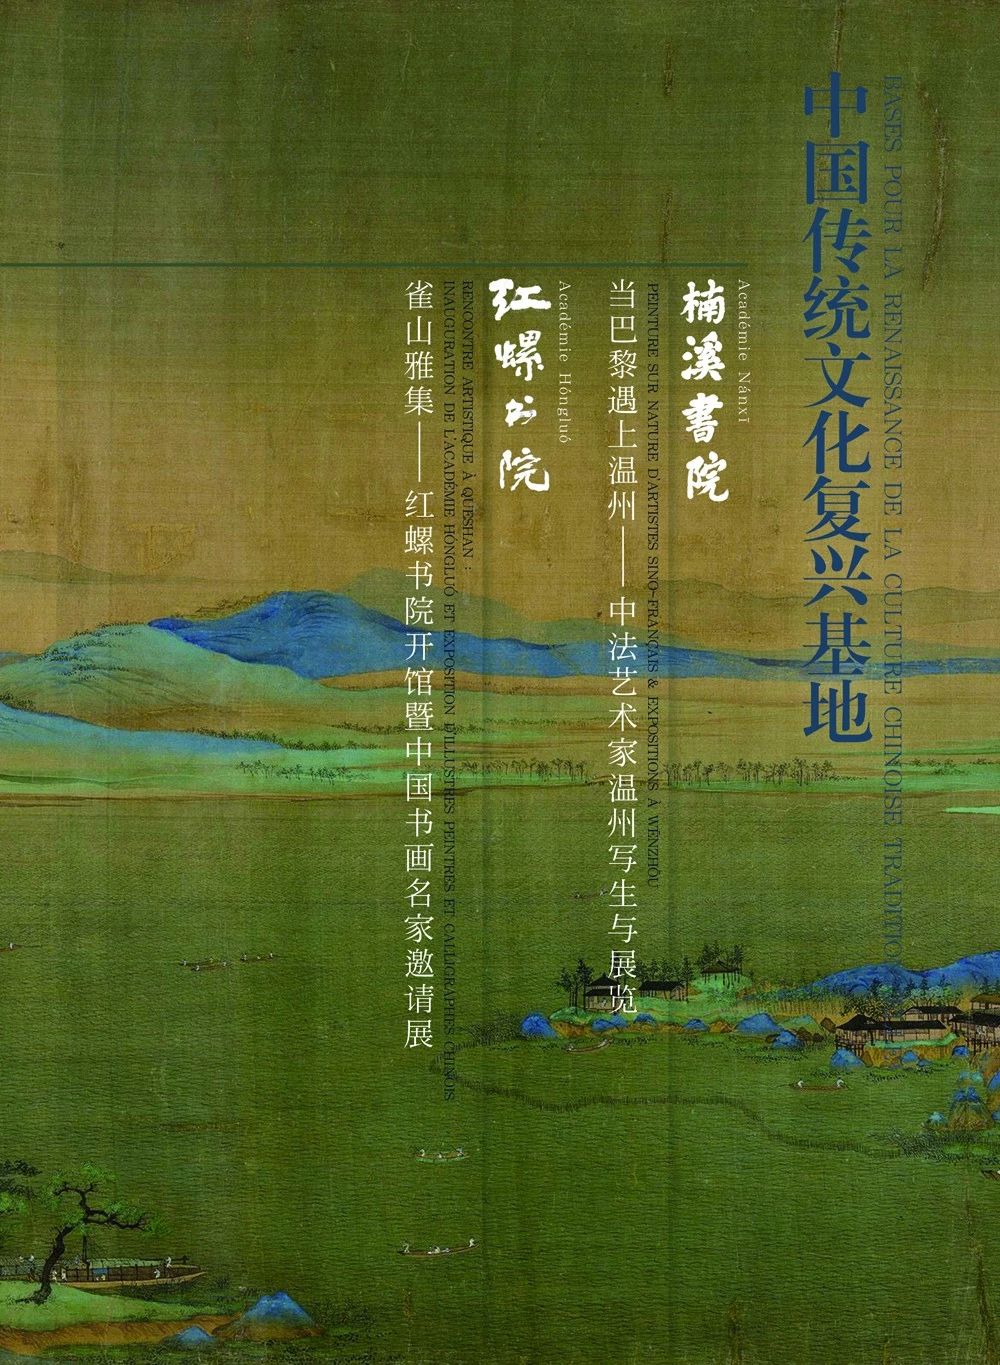 中国传统文化复兴基地
BASES POUR LA RENAISSANCE DE LA CULTURE CHINOISE TRADITIO
楠溪書院
Académie Nánxī
当巴黎遇上温州——中法艺术家温州写生与展览
PEINTURE SUR NATURE D'ARTISTES SINO-FRANÇAIS & EXPOSITIONS À WĒNZHŌU
红螺书院
Académie Hóngluó
雀山雅集——红螺书院开馆暨中国书画名家邀请展
RENCONTRE ARTISTIQUE À QUESHAN :
INAUGURATION DE L'ACADÉMIE HÓNGLUÓ ET EXPOSITION D'ILLUSTRES PEINTRES ET CALLIGRAPHES CHINOIS